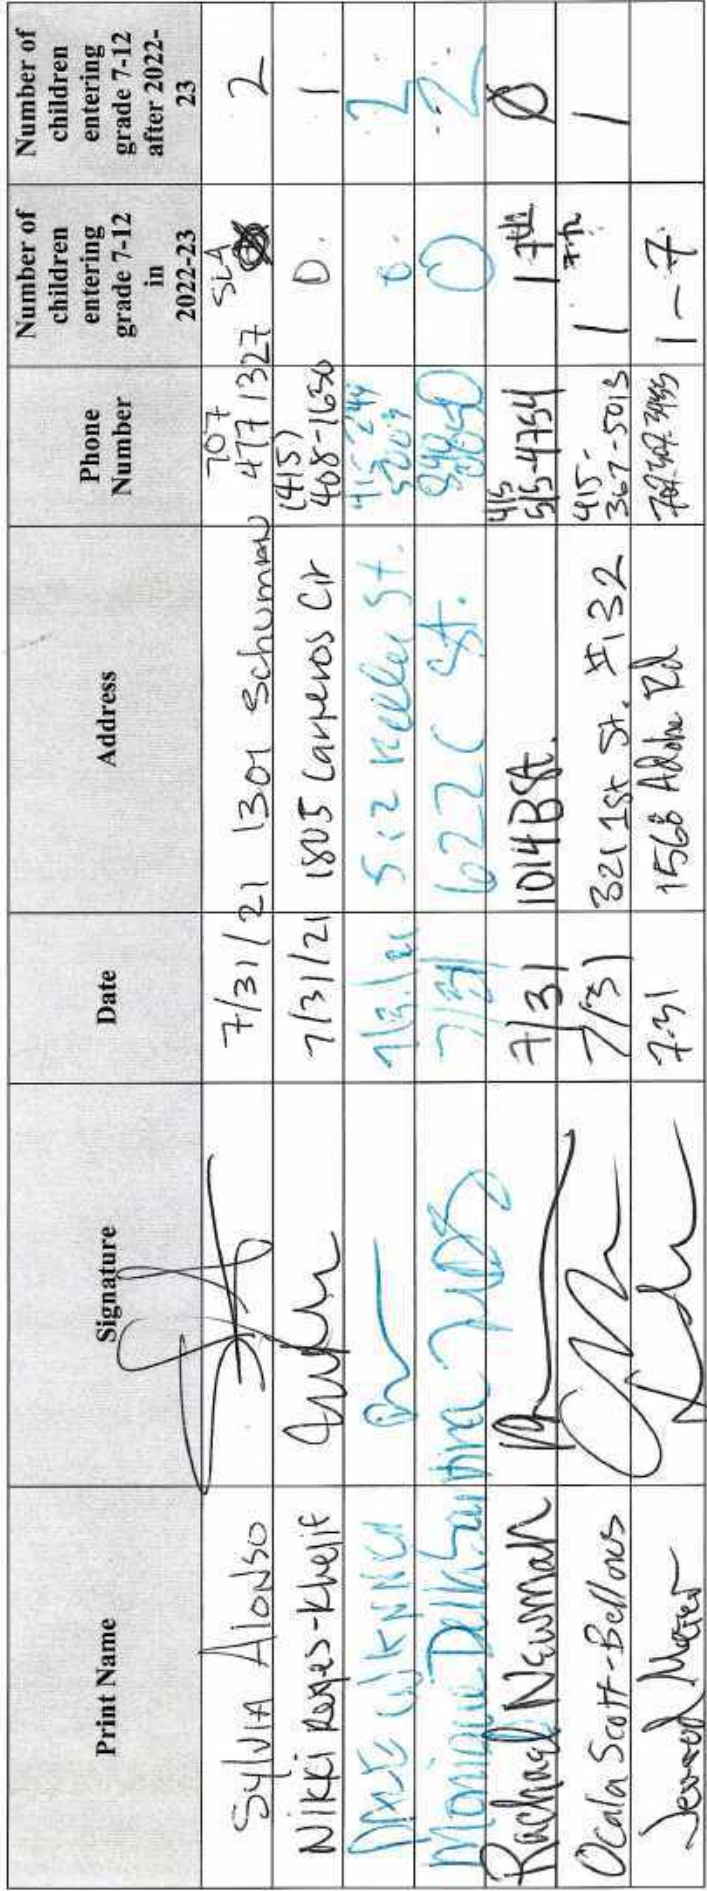 Print Name
Signature
Date
Address
Phone Number
Number of children entering grade 7-12 in 2022-23
Number of children entering grade 7-12 after 2022-23
Sylvia Alonso 7/31/21 1301 Schuman 707 477 1327 2
Nikki Reyes-Khelif 7/31/21 1805 Carneros Cir (415) 408-1650 0. 1
512 Keller St. 2
Monique 7/31 622 C St. 0 2
Rachael Newman 7/31 1014 B St. 415 515-4754 1 7th 0
Ocala Scott-Bellows 7/31 321 1st St. #132 415-367-5013 1 7th 1
7-31 1568 Adobe Rd 1-7